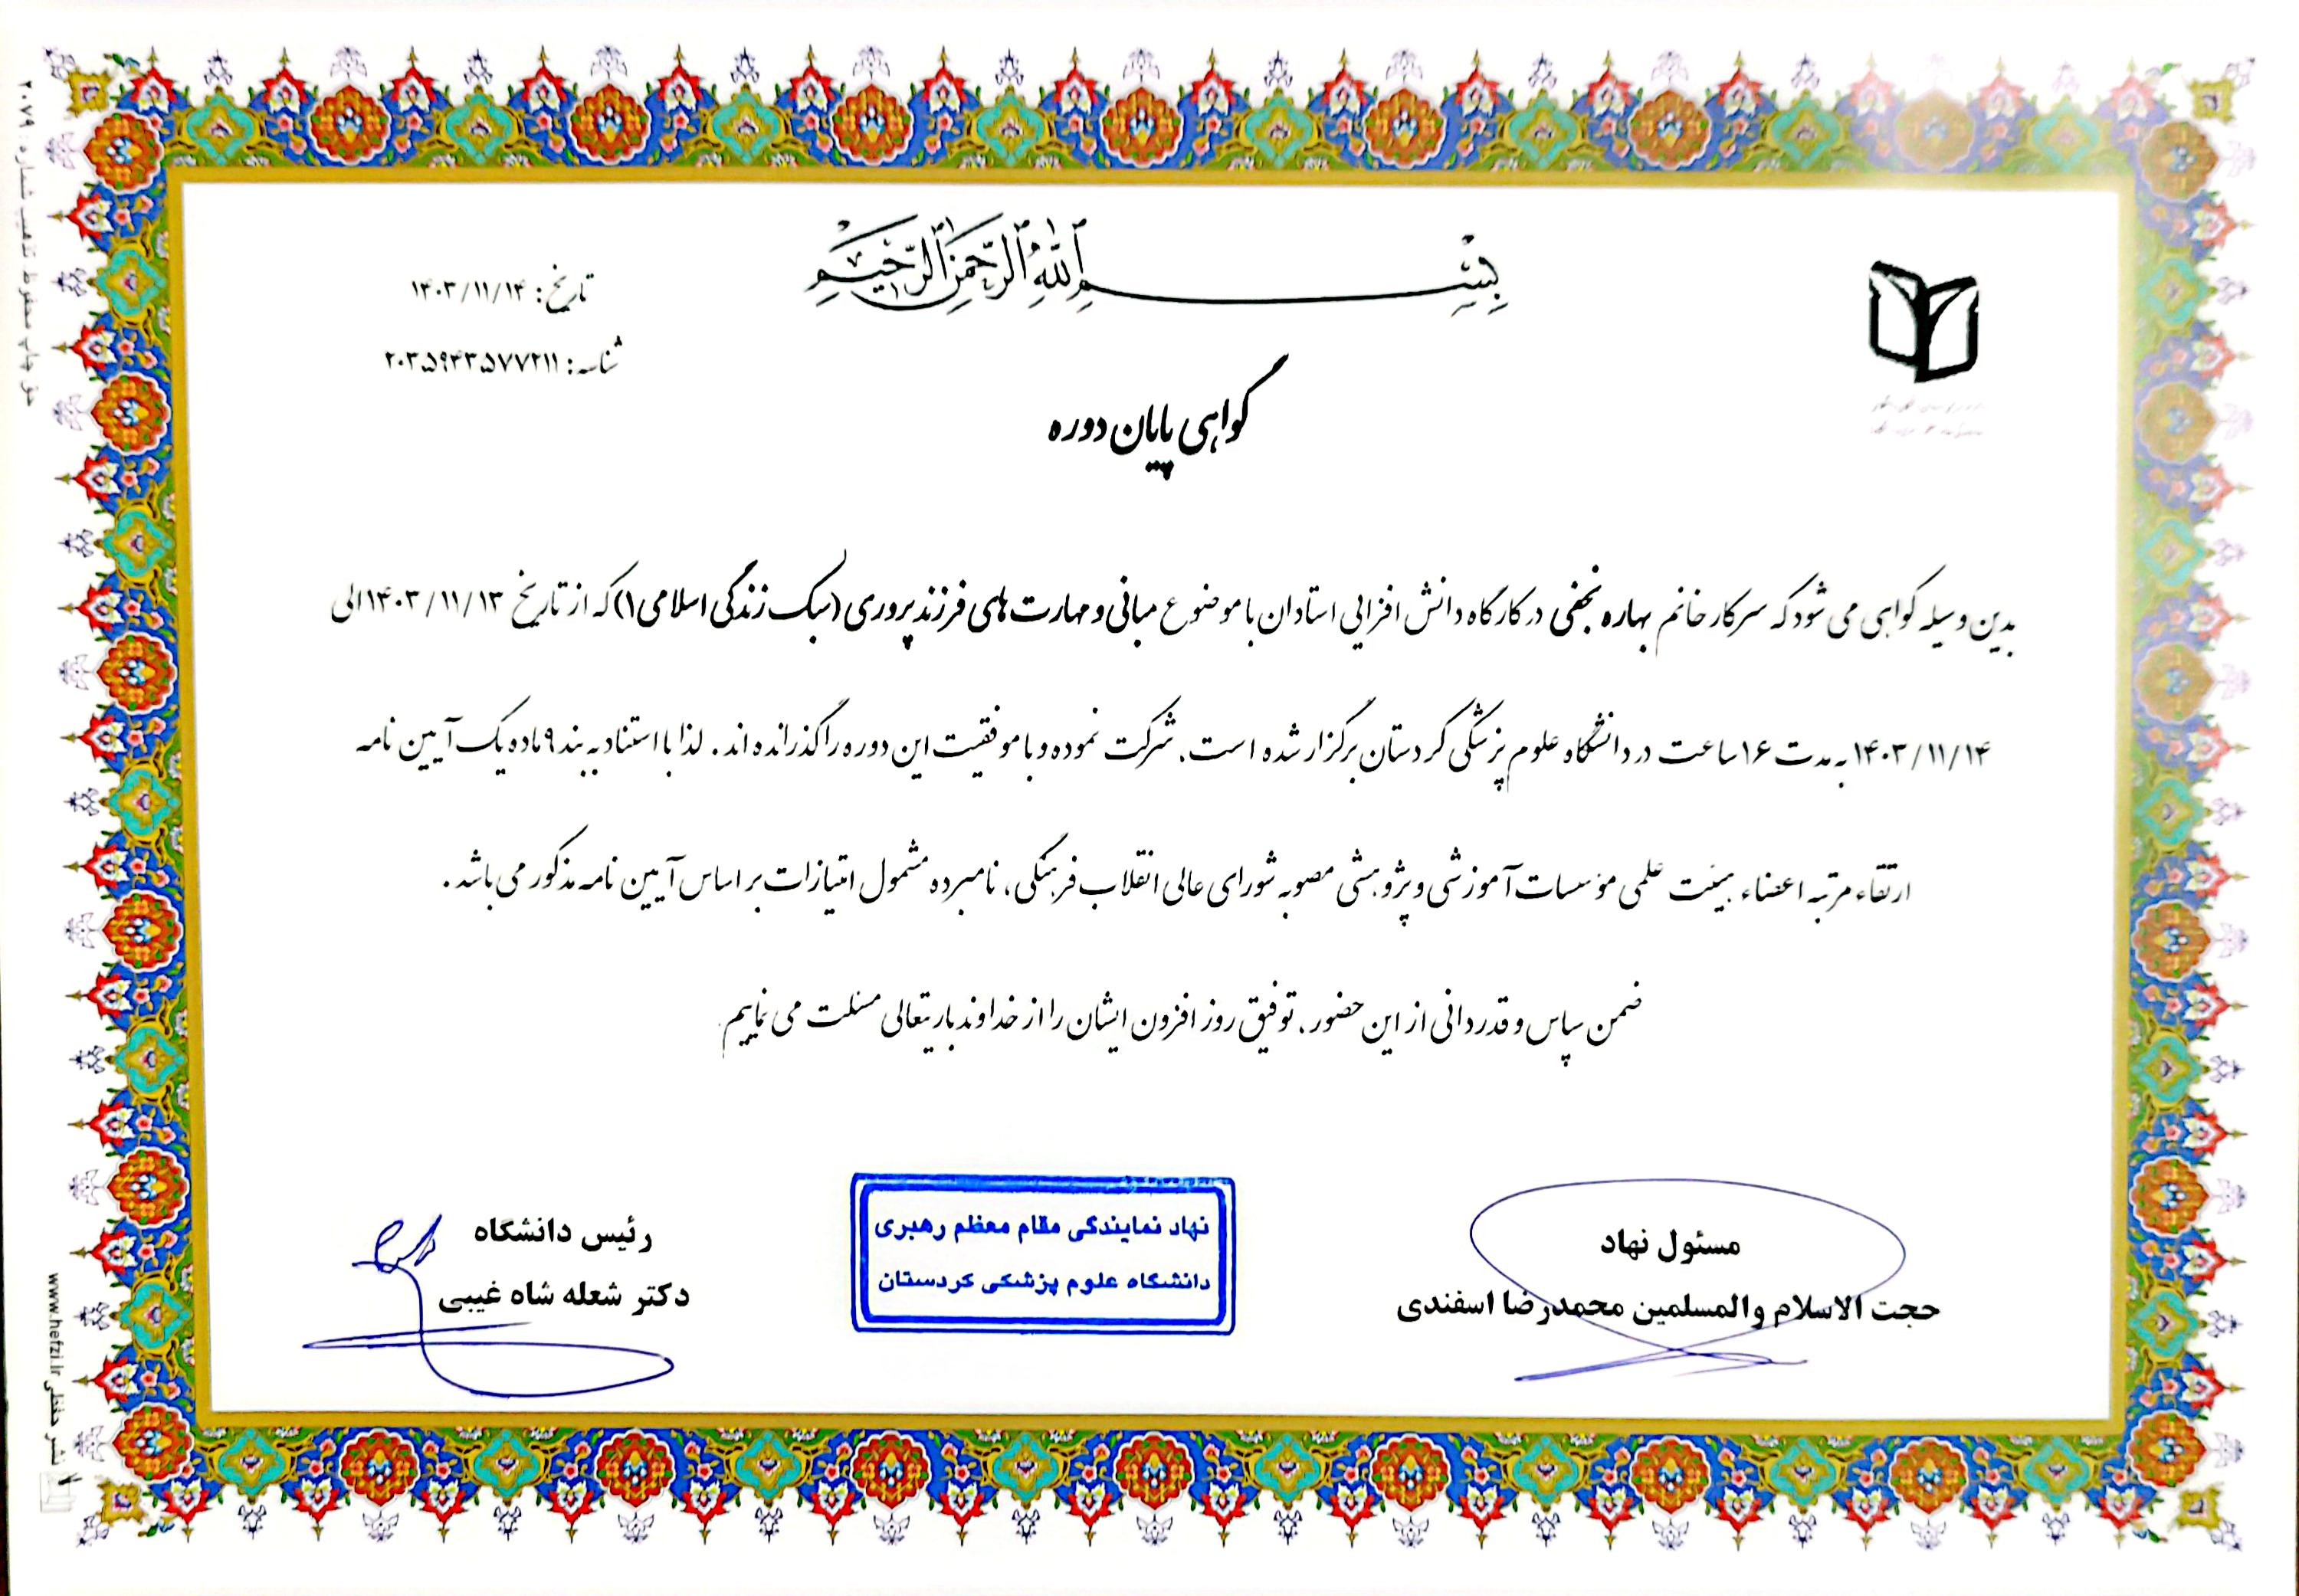 بِسْمِ اللهِ الرَّحْمنِ الرَّحيمِ
تاریخ: ۱۴۰۳/۱۱/۱۴
شناسه: ۲۰۳۵۹۴۳۵۷۷۲۱۱
گواهی پایان دوره
بدین وسیله گواهی می شود که سرکار خانم بهاره نجفی در کارگاه دانش افزایی استادان با موضوع مبانی و مهارت های فرزندپروری (سبک زندگی اسلامی۱) که از تاریخ ۱۴۰۳/۱۱/۱۳ الی
۱۴۰۳/۱۱/۱۴ به مدت ۱۶ ساعت در دانشگاه علوم پزشکی کردستان برگزار شده است. شرکت نموده و با موفقیت این دوره را گذرانده اند. لذا با استناد به بند ۹ ماده یک آیین نامه
ارتقاء مرتبه اعضاء هیئت علمی مؤسسات آموزشی و پژوهشی مصوبه شورای عالی انقلاب فرهنگی، نامبرده مشمول امتیازات بر اساس آیین نامه مذکور می باشد.
ضمن سپاس و قدردانی از این حضور، توفیق روز افزون ایشان را از خداوند باریتعالی مسئلت می نماییم.
مسئول نهاد
حجت الاسلام والمسلمین محمدرضا اسفندی
نهاد نمایندگی مقام معظم رهبری
دانشگاه علوم پزشکی کردستان
رئیس دانشگاه
دکتر شعله شاه غیبی
حق چاپ محفوظ تذهیب شماره ۲۰۷۹
نشر حفظی www.hefzi.ir